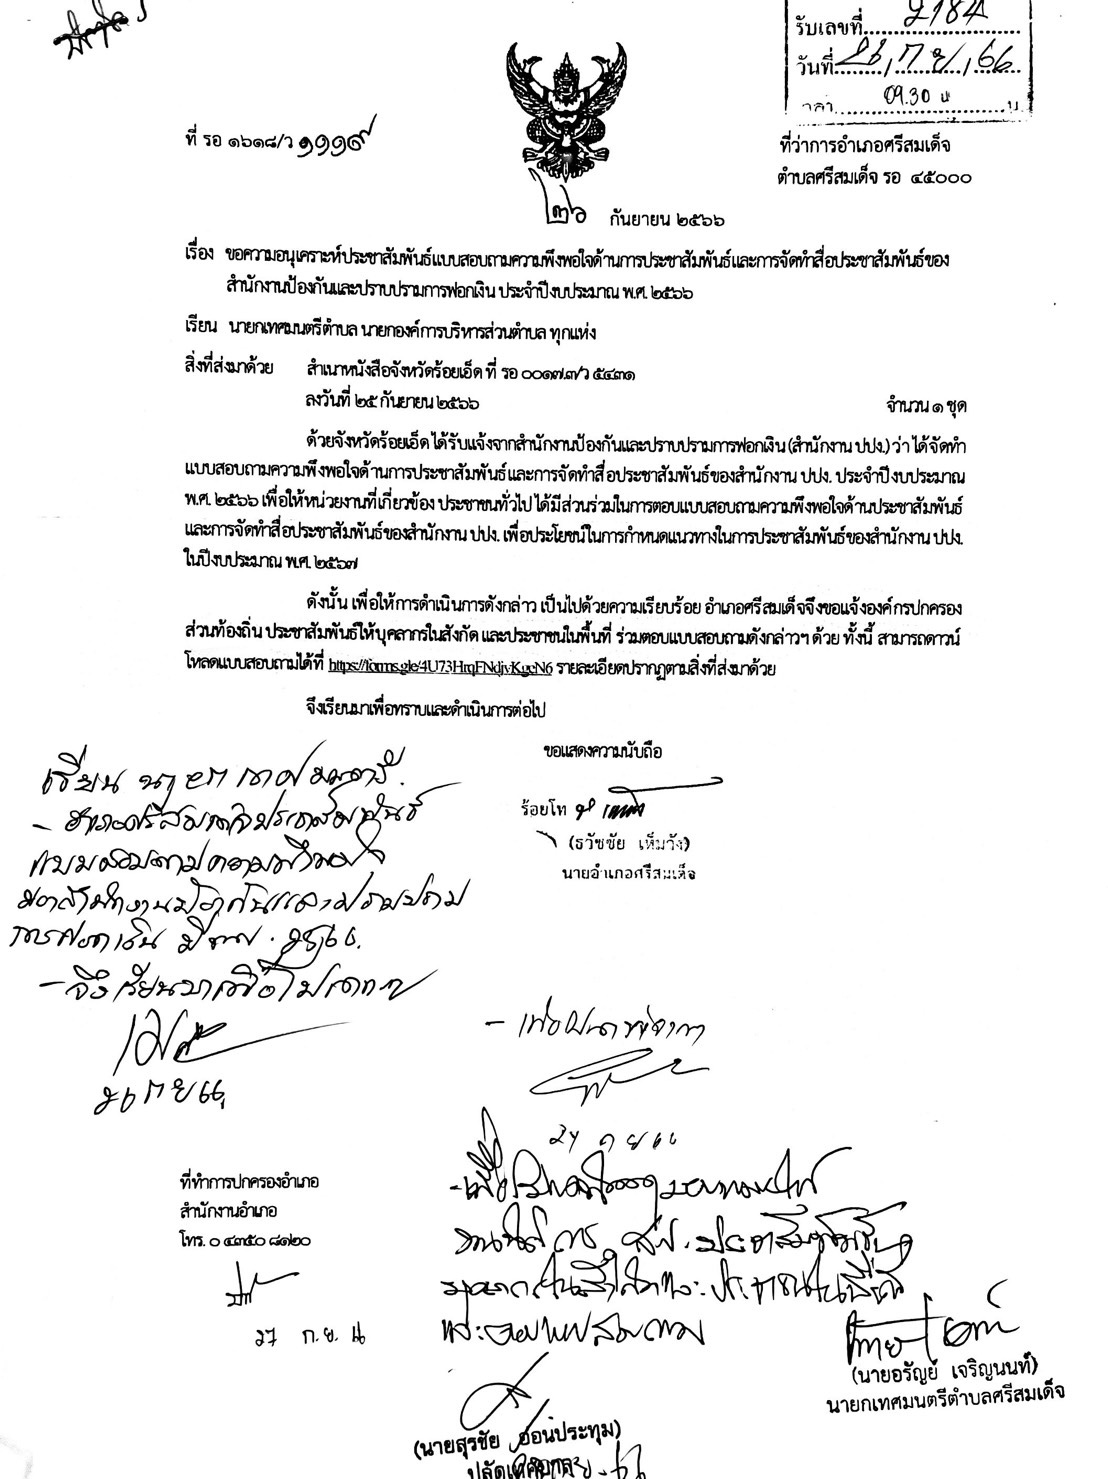 รับเลขที่ 2184
วันที่ 26 / ก.ย. / 66
09.30 น
ที่ รอ ๑๖๑๘/ว ๑๑๑๙
ที่ว่าการอำเภอศรีสมเด็จ
ตำบลศรีสมเด็จ รอ ๔๕๐๐๐
๒๖ กันยายน ๒๕๖๖
เรื่อง ขอความอนุเคราะห์ประชาสัมพันธ์แบบสอบถามความพึงพอใจด้านการประชาสัมพันธ์และการจัดทำสื่อประชาสัมพันธ์ของ
สำนักงานป้องกันและปราบปรามการฟอกเงิน ประจำปีงบประมาณ พ.ศ. ๒๕๖๖
เรียน นายกเทศมนตรีตำบล นายกองค์การบริหารส่วนตำบล ทุกแห่ง
สิ่งที่ส่งมาด้วย สำเนาหนังสือจังหวัดร้อยเอ็ด ที่ รอ ๐๐๑๗.๓/ว ๕๔๓๑
ลงวันที่ ๒๕ กันยายน ๒๕๖๖ จำนวน ๑ ชุด
ด้วยจังหวัดร้อยเอ็ด ได้รับแจ้งจากสำนักงานป้องกันและปราบปรามการฟอกเงิน (สำนักงาน ปปง.) ว่า ได้จัดทำ
แบบสอบถามความพึงพอใจด้านการประชาสัมพันธ์ และการจัดทำสื่อประชาสัมพันธ์ของสำนักงาน ปปง. ประจำปีงบประมาณ
พ.ศ. ๒๕๖๖ เพื่อให้หน่วยงานที่เกี่ยวข้อง ประชาชนทั่วไป ได้มีส่วนร่วมในการตอบแบบสอบถามความพึงพอใจด้านประชาสัมพันธ์
และการจัดทำสื่อประชาสัมพันธ์ของสำนักงาน ปปง. เพื่อประโยชน์ในการกำหนดแนวทางในการประชาสัมพันธ์ของสำนักงาน ปปง.
ในปีงบประมาณ พ.ศ. ๒๕๖๗
ดังนั้น เพื่อให้การดำเนินการดังกล่าว เป็นไปด้วยความเรียบร้อย อำเภอศรีสมเด็จจึงขอแจ้งองค์กรปกครอง
ส่วนท้องถิ่น ประชาสัมพันธ์ให้บุคลากรในสังกัด และประชาชนในพื้นที่ ร่วมตอบแบบสอบถามดังกล่าวฯ ด้วย ทั้งนี้ สามารถดาวน์
โหลดแบบสอบถามได้ที่ https://forms.gle/4U73HrqFNdjvKgcN6 รายละเอียดปรากฏตามสิ่งที่ส่งมาด้วย
จึงเรียนมาเพื่อทราบและดำเนินการต่อไป
ขอแสดงความนับถือ
ร้อยโท
(ธวัชชัย เห็มวัง)
นายอำเภอศรีสมเด็จ
เรียน นายกเทศมนตรี
- อำเภอศรีสมเด็จประชาสัมพันธ์
แบบสอบถามความพึงพอใจ
ของสำนักงานป้องกันและปราบปราม
การฟอกเงิน ปีงบ. 2566.
- จึงเรียนมาเพื่อโปรดทราบ
26 ก ย 66
- เพื่อพิจารณา
27 ก ย 66
ที่ทำการปกครองอำเภอ
สำนักงานอำเภอ
โทร. ๐ ๔๓๕๐ ๘๑๒๐
27 ก.ย.
และตอบแบบสอบถาม
(นายอรัญย์ เจริญนนท์)
นายกเทศมนตรีตำบลศรีสมเด็จ
(นายสุรชัย อ่อนประทุม)
ปลัดเทศบาล